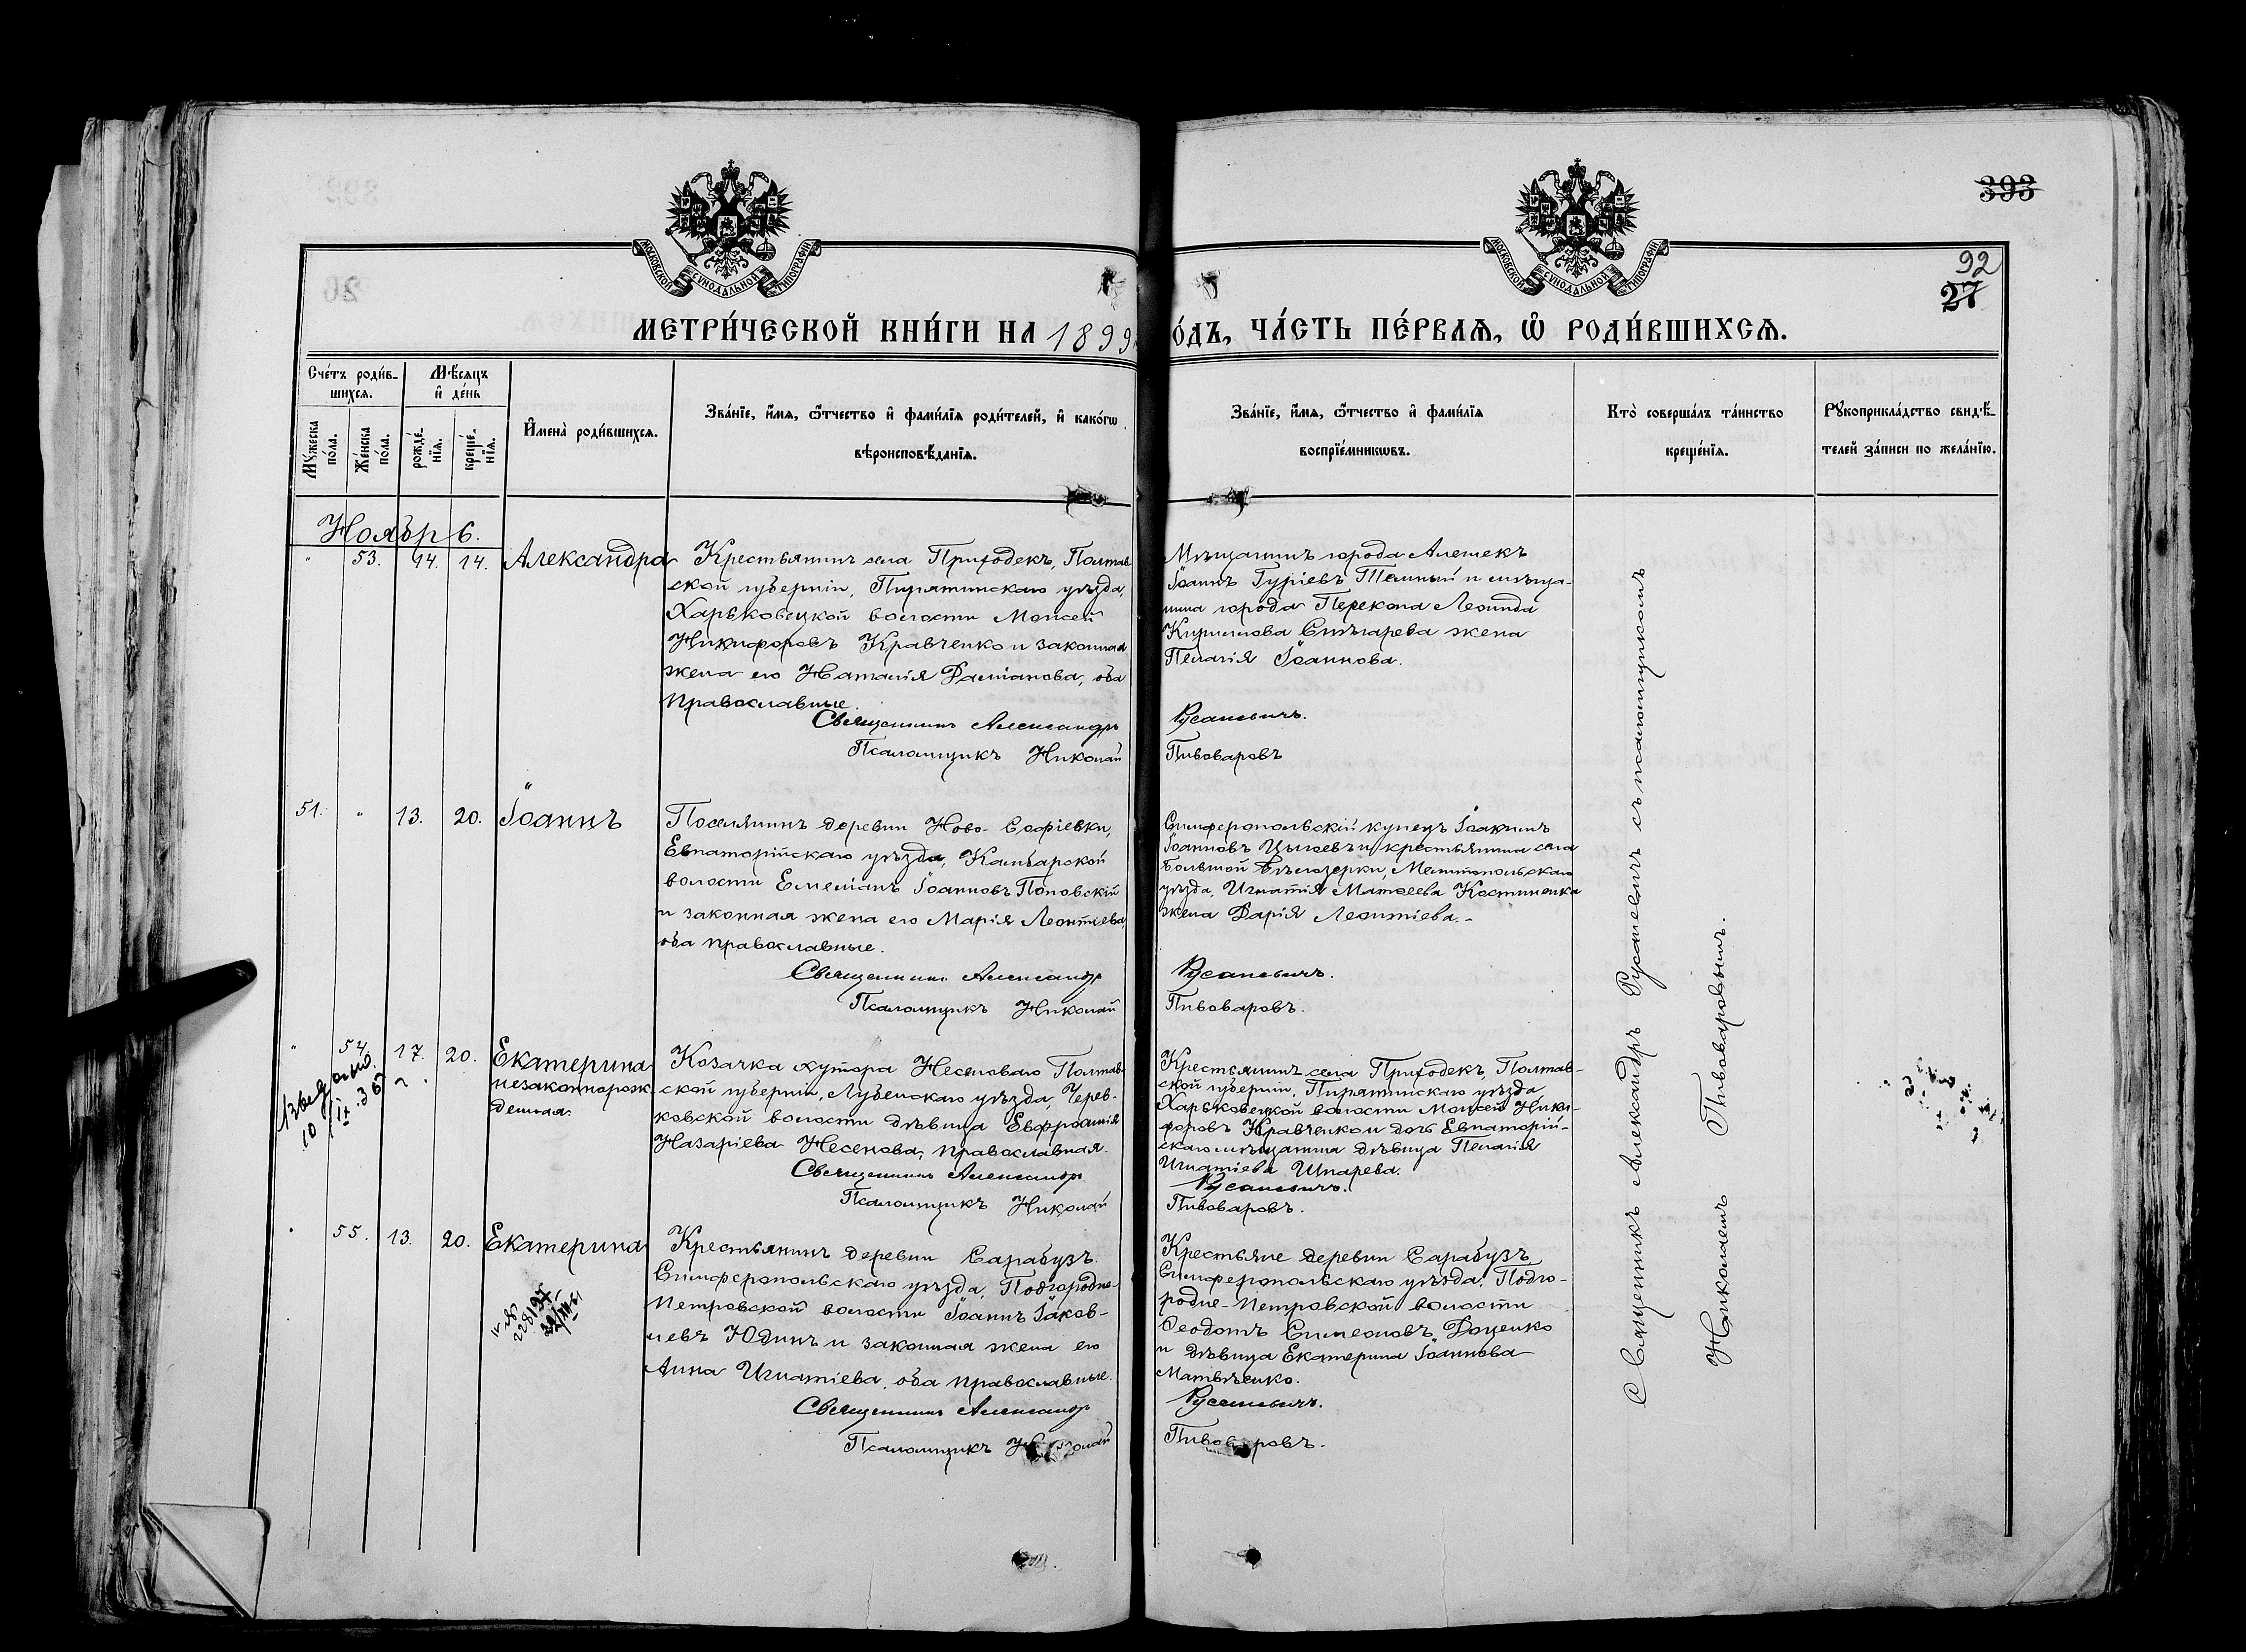 393
92
27
МОСКОВСКОЙ СУНОДАЛЬНОЙ ТИПОГРАФІИ
МОСКОВСКОЙ СУНОДАЛЬНОЙ ТИПОГРАФІИ
МЕТРИ́ЧЕСКОЙ КНИ́ГИ НА 1899
О́ДЪ, ЧА́СТЬ ПЕ́РВАѦ, Ѡ҆ РОДИ́ВШИХСѦ.
Сче́тъ роди́в-
шихсѧ.
Мѣ́сѧцъ
и҆ де́нь
Мꙋ́жеска
по́ла.
Же́нска
по́ла.
рожде́-
нїѧ.
креще́-
нїѧ.
И҆мена̀ роди́вшихсѧ.
Зва́нїе, и҆́мѧ, ѻ҆́тчество и҆ фами́лїѧ роди́телей, и҆ како́гѡ
вѣроисповѣ́данїѧ.
Зва́нїе, и҆́мѧ, ѻ҆́тчество и҆ фами́лїѧ
воспрїе́мникѡвъ.
Кто̀ соверша́лъ та́инство
креще́нїѧ.
Рꙋкоприкла́дство свидѣ́-
телей за́писи по жела́нїю.
Ноябрь.
" 53. 14. 14. Александра
Крестьянинъ села Приходекъ, Полтав-
ской губерніи, Пирятинскаго уѣзда,
Харьковецкой волости Моисей
Никифоровъ Кравченко и законная
жена его Наталія Даміанова, оба
православные.
Священникъ Александръ
Псаломщикъ Николай
Мѣщанинъ города Алешекъ
Іоаннъ Гуріевъ Темный и мѣща-
нина города Перекопа Леонида
Кириллова Снѣгарева жена
Пелагія Іоаннова.
Русаневичъ.
Пивоваровъ
51. " 13. 20. Іоаннъ
Поселянинъ деревни Ново-Софіевки,
Евпаторійскаго уѣзда, Камбарской
волости Емеліанъ Іоанновъ Поповскій
и законная жена его Марія Леонтіева,
оба православные.
Священникъ Александр
Псаломщикъ Николай
Симферопольскій купецъ Іоакимъ
Іоанновъ и крестьянина села
Большой Бѣлозерки, Мелитопольскаго
уѣзда, Игнатія Матѳеева Костиненка
жена Дарія Леонтіева.-
Русаневичъ.
Пивоваровъ.
" 54. 17. 20. Екатерина
незаконнорож-
денная.
10/IX.36
Козачка хутора Несеноваго Полтав-
ской губерніи, Лубенскаго уѣзда, Черев-
ковской волости дѣвица Евфросинія
Назаріева Несенова, православная.
Священникъ Александр
Псаломщикъ Николай
Крестьянинъ села Приходекъ, Полтав-
ской губерніи, Пирятинскаго уѣзда,
Харьковецкой волости Моисей Ники-
форовъ Кравченко и дочь Евпаторій-
скаго мѣщанина дѣвица Пелагія
Игнатіева Шпарева.
Русаневичъ.
Пивоваровъ.
" 55. 13. 20. Екатерина
228197
Крестьянинъ деревни Сарабузъ
Симферопольскаго уѣзда, Подгородне-
Петровской волости Іоаннъ Іаков-
левъ Юдинъ и законная жена его
Анна Игнатіева, оба православные.
Священникъ Александр
Псаломщикъ Николай
Крестьяне деревни Сарабузъ
Симферопольскаго уѣзда, Подго-
родне-Петровской волости
Ѳеодотъ Симеоновъ Доценко
и дѣвица Екатерина Іоаннова
Матвѣенко.
Русаневичъ.
Пивоваровъ.
Священникъ Александръ Русаневичъ съ псаломщикомъ
Николаемъ Пивоваровымъ.